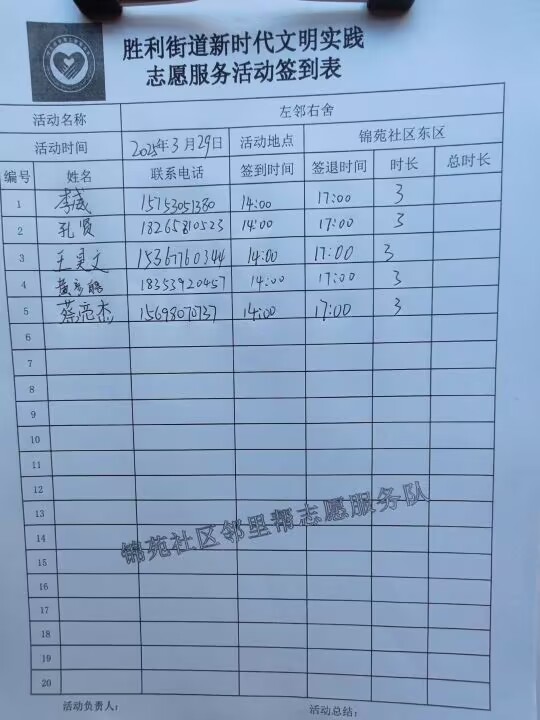 胜利街道新时代文明实践
志愿服务活动签到表
活动名称 左邻右舍
活动时间 2025年3月29日 活动地点 锦苑社区东区
编号 姓名 联系电话 签到时间 签退时间 时长 总时长
1 李成 15153051380 14:00 17:00 3
2 孔贤 18265810523 14:00 17:00 3
3 王昊文 15367760344 14:00 17:00 3
4 黄 18353920457 14:00 17:00 3
5 蔡亮杰 15698070737 14:00 17:00 3
6
7
8
9
10
11
12
13
14
15
16
17
18
19
20
锦苑社区邻里帮志愿服务队
活动负责人: 活动总结: